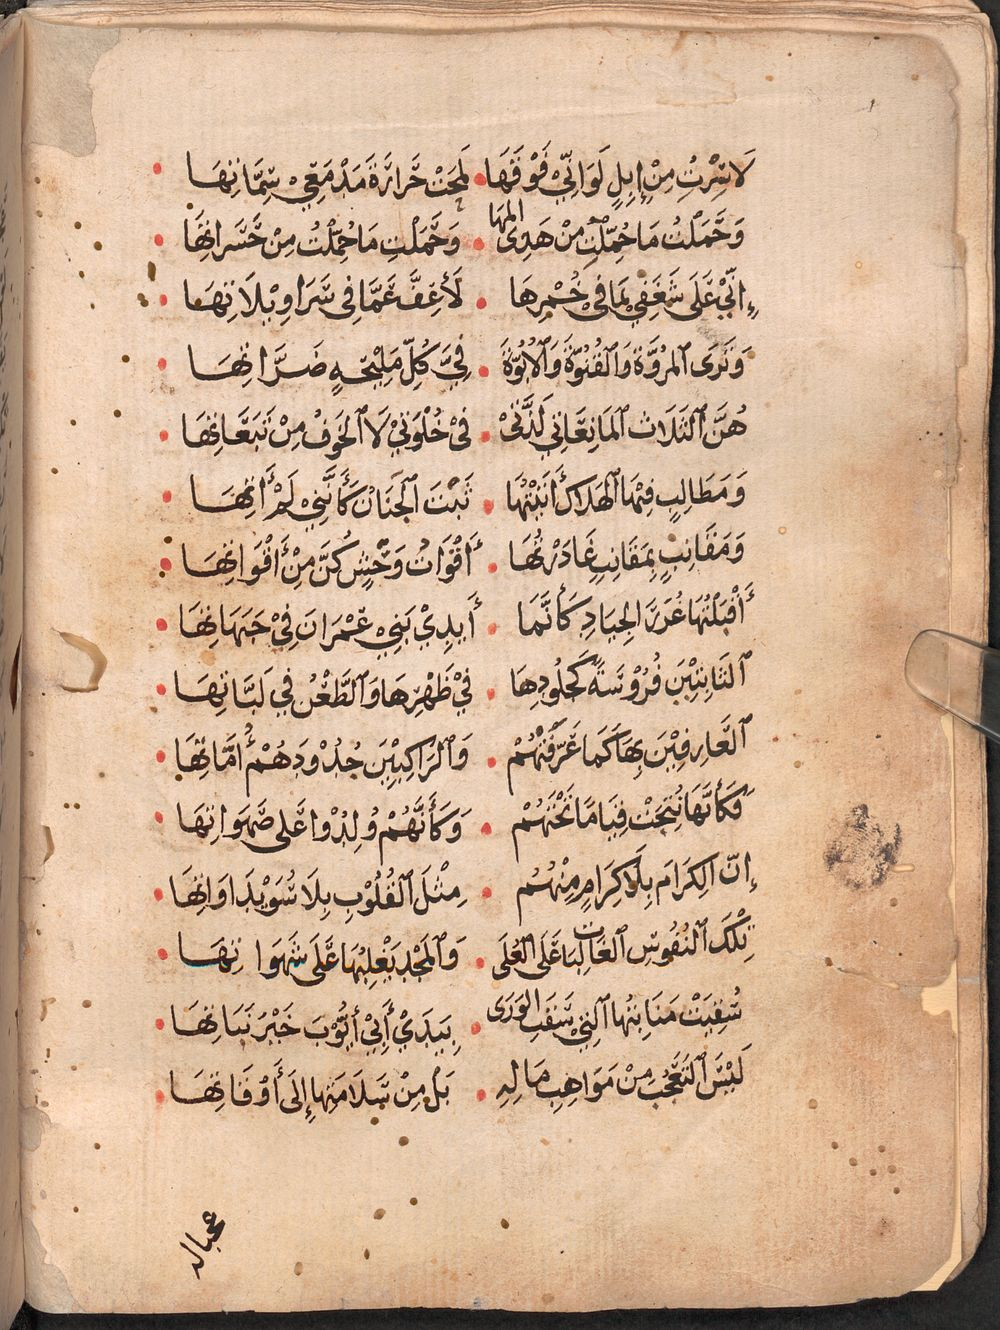 لَا سِرْتِ مِنْ إِبِلٍ لَوَ انِّيْ فَوْقَهَا لَمَحَتْ حَرَارَةُ مَدْمَعَيْ سِمَاتِهَا
وَحَمَلْتُ مَا حُمِّلْتِ مِنْ هَذِي المَهَا وَحَمَلْتِ مَا حُمِّلْتُ مِنْ حَسَرَاتِهَا
إِنِّيْ عَلَى شَغَفِيْ بِمَا فِيْ خُمْرِهَا لَأَعِفُّ عَمَّا فِى سَرَاوِيْلَاتِهَا
وَتَرَى الْمُرُوَّةَ وَالْفُتُوَّةَ وَالْأُبُوَّةَ فِيَّ كُلُّ مَلِيْحَةٍ ضَرَّاتِهَا
هُنَّ الثَّلَاثُ الْمَانِعَاتِي لَذَّتِيْ فِيْ خُلْوَتِيْ لَا الْخَوْفُ مِنْ تَبَعَاتِهَا
وَمَطَالِبٍ فِيْهَا الْهَلَاكُ أَتَيْتُهَا ثَبْتَ الْجَنَانِ كَأَنَّنِيْ لَمْ أٰتِهَا
وَمَقَانِبٍ بِمَقَانِبٍ غَادَرْتُهَا أَقْوَاتَ وَحْشٍ كُنَّ مِنْ أَقْوَاتِهَا
أَقْبَلْتُهَا غُرَرَ الْجِيَادِ كَأَنَّمَا أَيْدِيْ بَنِيْ عِمْرَانَ فِيْ جَبَهَاتِهَا
الثَّابِتِيْنَ فُرُوْسَةً كَجُلُودِهَا فِيْ ظَهْرِهَا وَالطَّعْنُ فِي لَبَّاتِهَا
الْعَارِفِيْنَ بِهَا كَمَا عَرَفَتْهُمْ وَالرَّاكِبِيْنَ جُدُوْدُهُمْ أُمَّاتِهَا
فَكَأَنَّهَا نُتِجَتْ قِيَامًا تَحْتَهُمْ وَكَأَنَّهُمْ وُلِدُوْا عَلَى صَهَوَاتِهَا
إِنَّ الْكِرَامَ بِلَا كِرَامٍ مِنْهُمُ مِثْلَ الْقُلُوْبِ بِلَا سُوَيْدَاوَاتِهَا
تِلْكَ النُّفُوسُ الْغَالِبَاتُ عَلَى الْعُلَى وَالْمَجْدُ يَغْلِبُهَا عَلَى شَهَوَاتِهَا
سُقِيَتْ مَنَابِتُهَا الَّتِيْ سَقَتِ الوَرَى بِيَدَيْ أَبِيْ أَيُّوْبَ خَيْرِ نَبَاتِهَا
لَيْسَ التَّعَجُّبُ مِنْ مَوَاهِبِ مَالِهِ بَلْ مِنْ سَلَامَتِهَا إِلَى أَوْقَاتِهَا
عجبا له